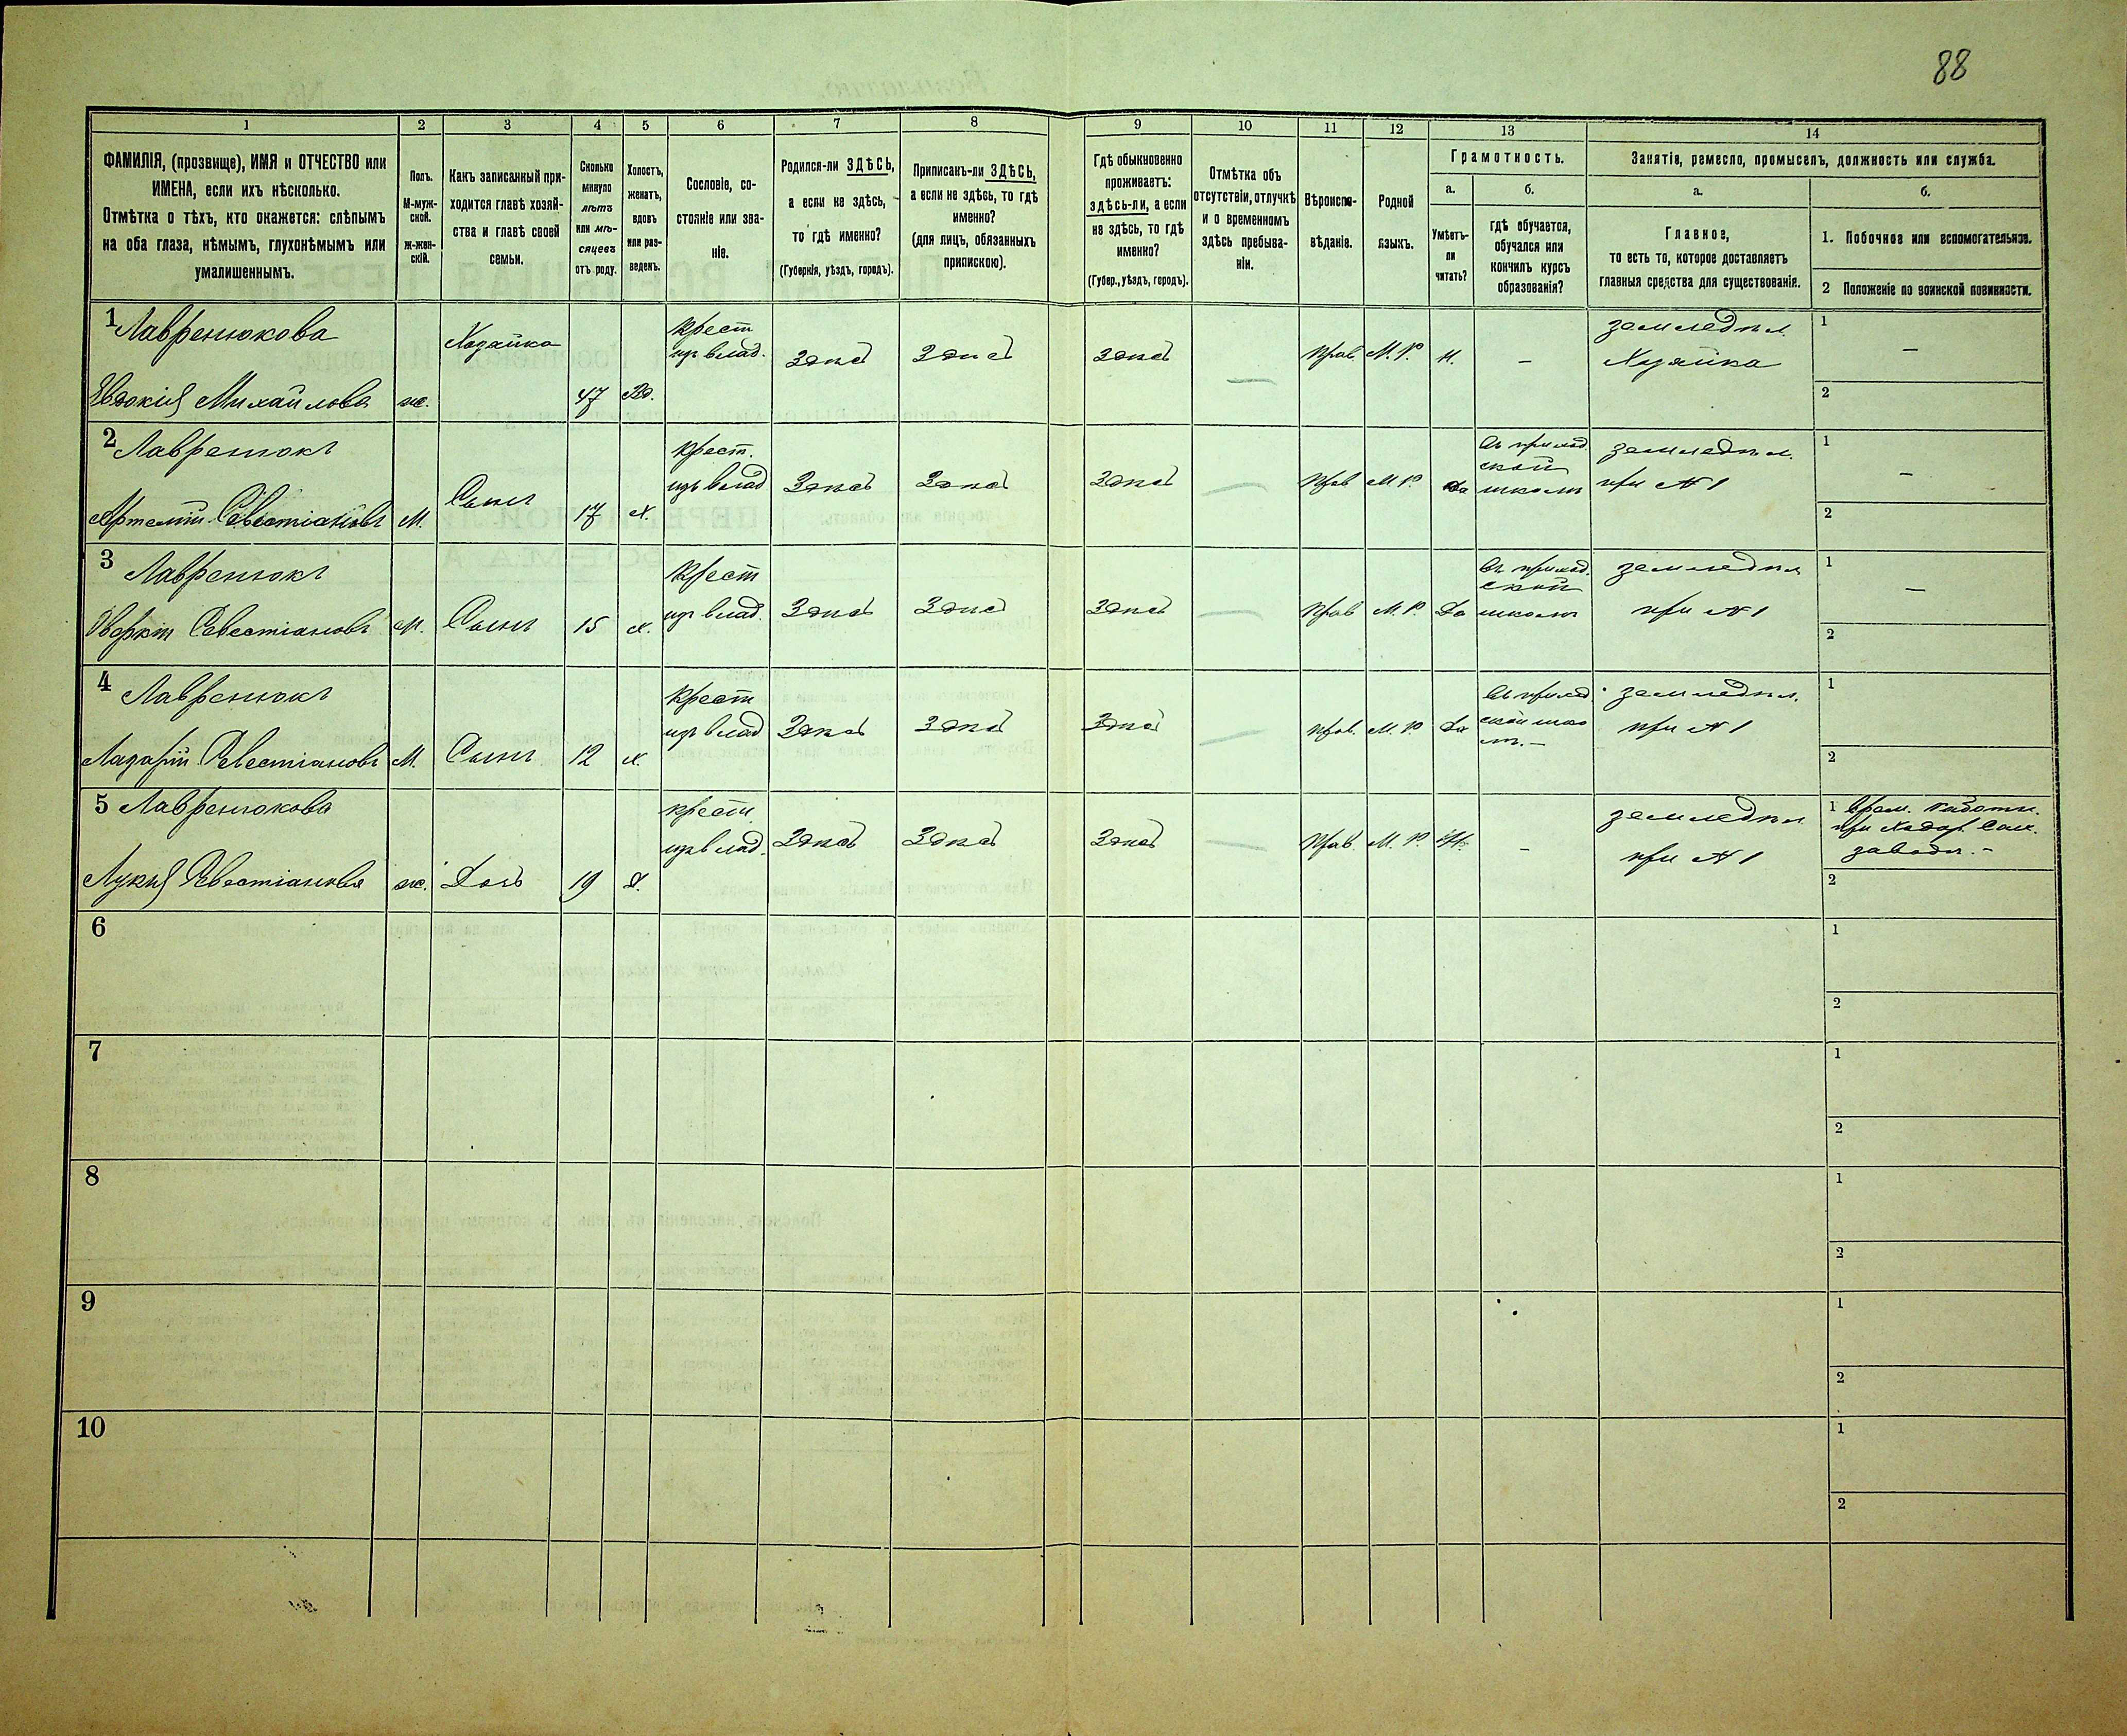 88
1 2 3 4 5 6 7 8 9 10 11 12 13 14
ФАМИЛІЯ, (прозвище), ИМЯ и ОТЧЕСТВО или
ИМЕНА, если ихъ нѣсколько.
Отмѣтка о тѣхъ, кто окажется: слѣпымъ
на оба глаза, нѣмымъ, глухонѣмымъ или
умалишеннымъ.
Полъ.
М-муж-
ской.
ж-жен-
скій.
Какъ записанный при-
ходится главѣ хозяй-
ства и главѣ своей
семьи.
Сколько
минуло
лѣтъ
или мѣ-
сяцевъ
отъ роду.
Холостъ,
женатъ,
вдовъ
или раз-
веденъ.
Сословіе, со-
стояніе или зва-
ніе.
Родился-ли ЗДѢСЬ,
а если не здѣсь,
то гдѣ именно?
(Губернія, уѣздъ, городъ).
Приписанъ-ли ЗДѢСЬ,
а если не здѣсь, то гдѣ
именно?
(для лицъ, обязанныхъ
припискою).
Гдѣ обыкновенно
проживаетъ:
здѣсь-ли, а если
не здѣсь, то гдѣ
именно?
(Губер., уѣздъ, городъ).
Отмѣтка объ
отсутствіи, отлучкѣ
и о временномъ
здѣсь пребыва-
ніи.
Вѣроиспо-
вѣданіе.
Родной
языкъ.
Грамотность.
а.
Умѣетъ-
ли
читать?
б.
гдѣ обучается,
обучался или
кончилъ курсъ
образованія?
Занятіе, ремесло, промыселъ, должность или служба.
а.
Главное,
то есть то, которое доставляетъ
главныя средства для существованія.
б.
1. Побочное или вспомогательное.
2 Положеніе по воинской повинности.
1 Лавренюкова
Евдокія Михайлова
ж.
Хозяйка
47
Вд.
крест
изъ влад.
Здѣсь
Здѣсь
Здѣсь
—
Прав.
М. Р.
Н.
—
земледѣл
Хозяйка
1 —
2
2 Лавренюкъ
Артемій Севестіановъ
М.
Сынъ
17
Х.
крест.
изъ влад
Здѣсь
Здѣсь
Здѣсь
—
Прав
М. Р.
Да
Въ приход
ской
школѣ
земледѣл.
при № 1
1 —
2
3 Лавренюкъ
Аверкій Севестіановъ
М.
Сынъ
15
Х.
крест
изъ влад.
Здѣсь
Здѣсь
Здѣсь
—
Прав
М. Р.
Да
Въ приход.
ской
школѣ
земледѣл
при № 1
1 —
2
4 Лавренюкъ
Лазарій Севестіановъ
М.
Сынъ
12
Х.
крест
изъ влад
Здѣсь
Здѣсь
Здѣсь
—
прав.
М. Р.
Да
Въ приход
ской шко
лѣ. —
земледѣл.
при № 1
1
2
5 Лавренюкова
Лукія Севестіанова
ж.
Дочь
19
Д.
крест.
изъ влад.
Здѣсь
Здѣсь
Здѣсь
—
Прав.
М. Р.
Н.
—
земледѣл
при № 1
1
при Ходор. Сах.
заводѣ. —
2
6
1
2
7
1
2
8
1
2
9
1
2
10
1
2